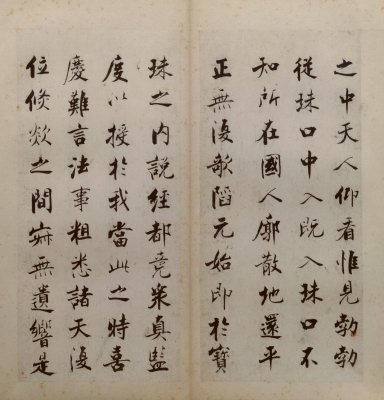 之中天人仰看惟見勃勃
從珠口中入既入珠口不
知所在國人廓散地還平
正無復欹陷元始即於寶
珠之內說經都竟衆真監
度以授於我當此之時喜
慶難言法事粗悉諸天復
位倐欻之間寂無遺響是